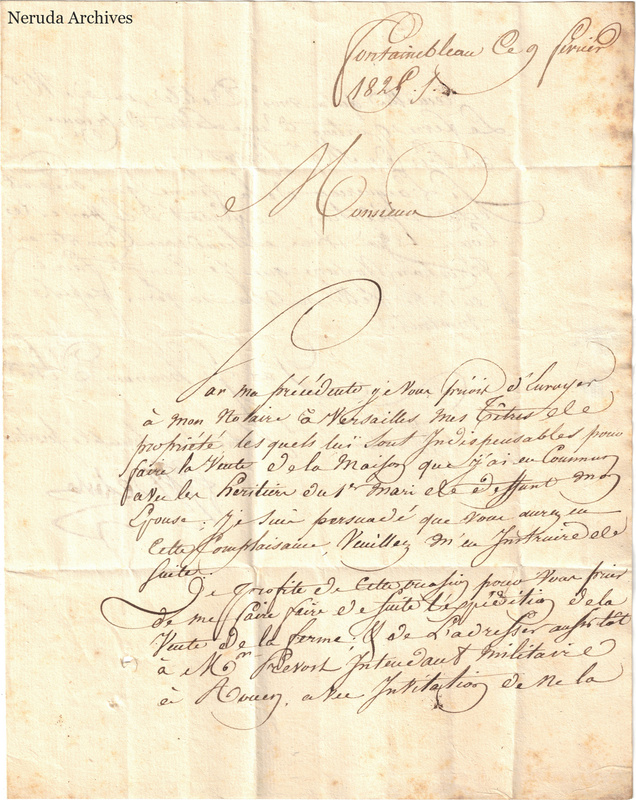 Neruda Archives
Fontainebleau Ce 9 février
182
Monsieur
Par ma précédente je vous priois d'Envoyer
à mon Notaire à Versailles, mes Titres de
propriété les quels lui sont Indispensables pour
faire la Vente de la Maison que j'ai en Commun
avec les héritiers du 1er Mari de deffunt mon
Epouse; je suis persuadé que vous aurez eu
cette Complaisance Veuillez m'en Instruire de
suite.
Je profite de cette occasion pour vous prier
de me faire faire de suite l'Expédition de la
Vente de la ferme & de L'adresser aussitot
à Mr Prevost intendant militaire
à Rouen, avec Invitation de ne la